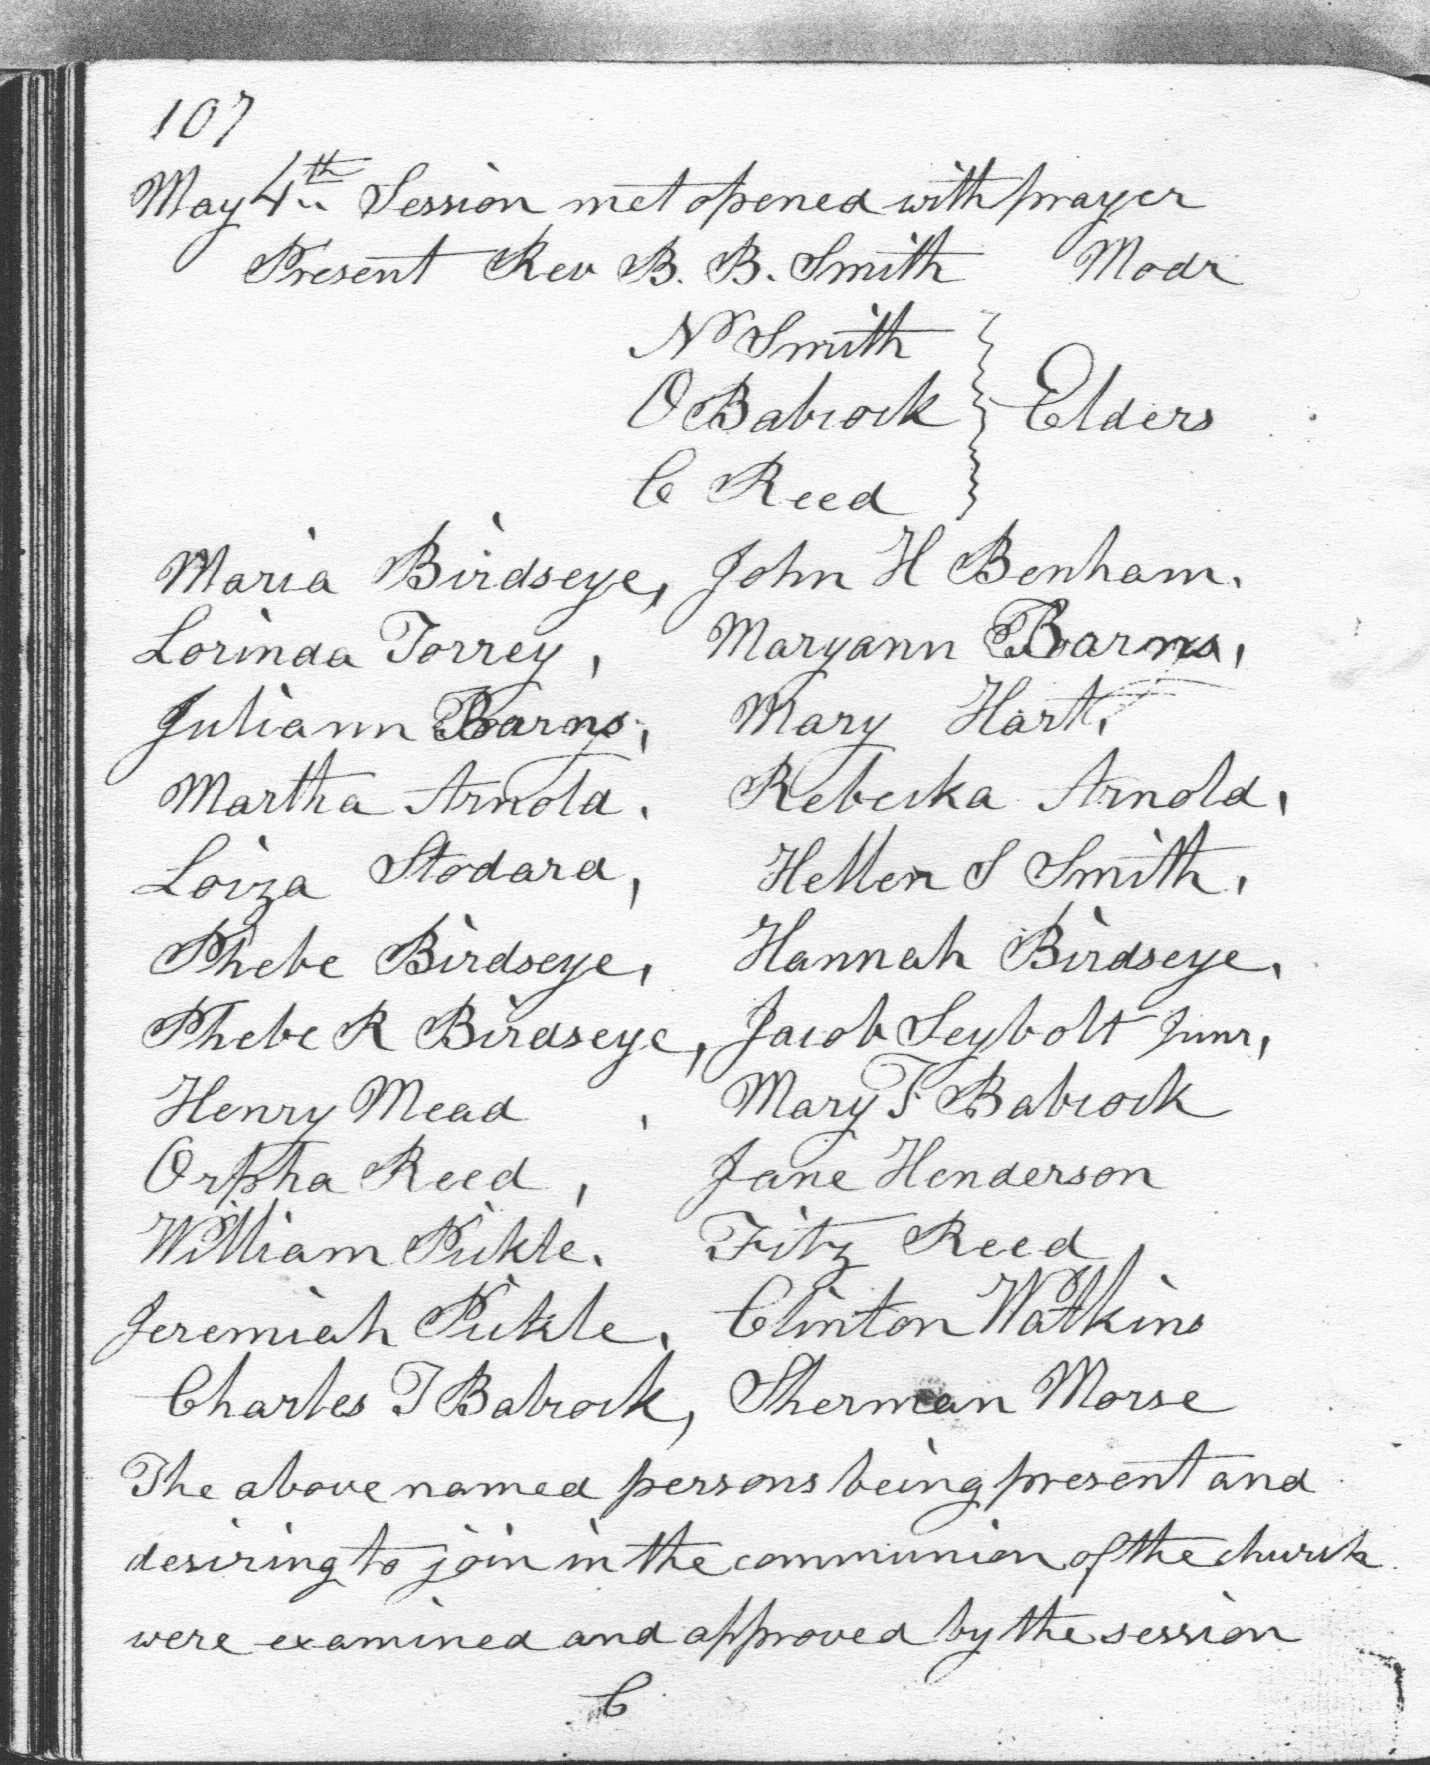 107
May 4th Session met opened with prayer
Present Rev B. B. Smith Modr
N Smith
O Babcock } Elders
C Reed
Maria Birdseye, John H Benham.
Lorinda Torrey, Maryann Barns,
Juliann Barns, Mary Hart,
Martha Arnold, Rebecka Arnold,
Loiza Stodard, Hellen S Smith,
Phebe Birdseye, Hannah Birdseye,
Phebe R Birdseye, Jacob Seybolt Junr,
Henry Mead , Mary T Babcock
Orpha Reed , Jane Henderson
William Pickle. Fitz Reed
Jeremiah Pickle, Clinton Watkins
Charles T Babcock, Sherman Morse
The above named persons being present and
desiring to join in the communion of the church
were examined and approved by the session
C